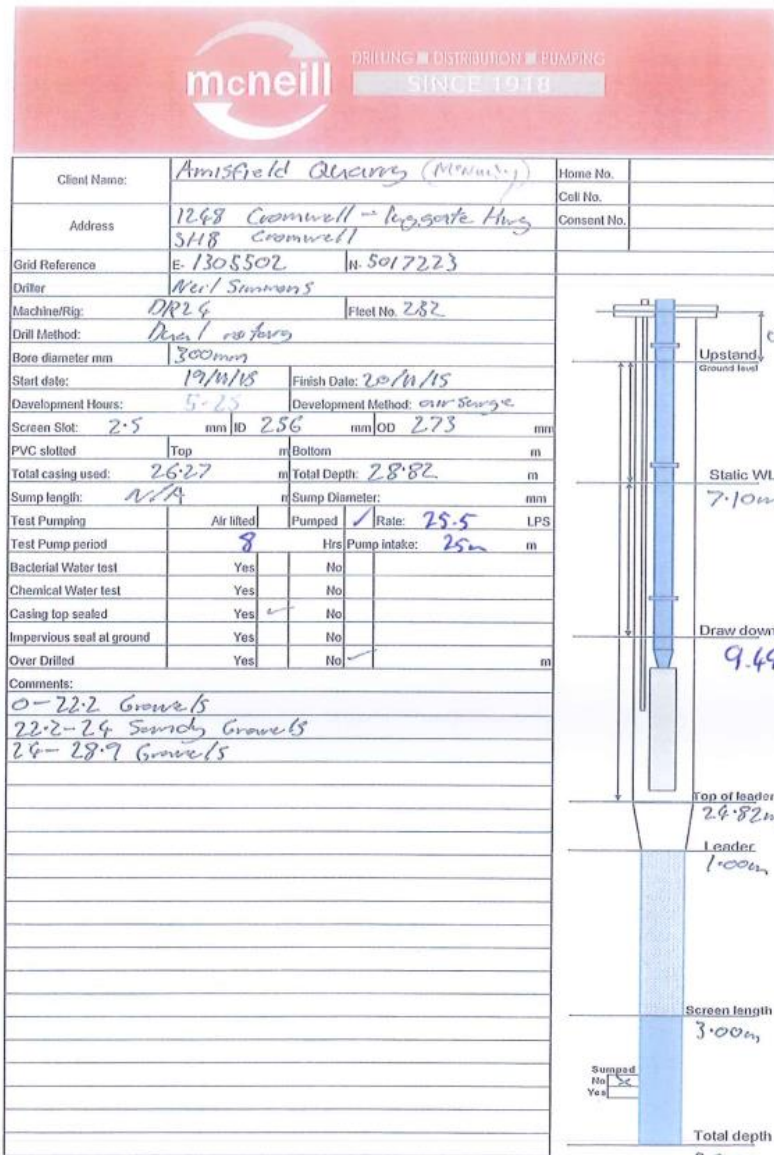 mcneill
DRILLING ■ DISTRIBUTION ■ PUMPING
SINCE 1918
Client Name: Amisfield Quarry
Home No.
Cell No.
Address 1248 Cromwell - Luggate Hwy
SH8 Cromwell
Consent No.
Grid Reference E- 1305502 N- 5017223
Driller Neil Simmons
Machine/Rig: DR24 Fleet No. 282
Drill Method: Dual rotary
Bore diameter mm 300mm
Start date: 19/11/15 Finish Date: 20/11/15
Development Hours: 5.25 Development Method: air surge
Screen Slot: 2.5 mm ID 256 mm OD 273 mm
PVC slotted Top m Bottom m
Total casing used: 26.27 m Total Depth: 28.82 m
Sump length: N/A m Sump Diameter: mm
Test Pumping Air lifted Pumped ✓ Rate: 25.5 LPS
Test Pump period 8 Hrs Pump intake: 25m m
Bacterial Water test Yes No
Chemical Water test Yes No
Casing top sealed Yes ✓ No
Impervious seal at ground Yes No
Over Drilled Yes No ✓ m
Comments:
0-22.2 Gravels
22.2-24 Sandy Gravels
24-28.9 Gravels
Upstand
Ground level
Static WL
7.10m
Draw down
9.49
Top of leader
24.82m
Leader
1.00m
Screen length
3.00m
Sumped
No X
Yes
Total depth